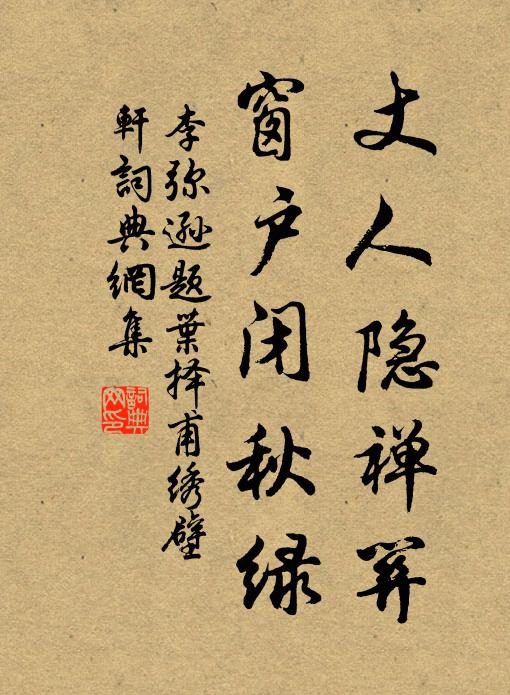 丈人隐禅关
窗户闭秋绿
李弥逊题叶择甫绣壁
軒詞典網集
詞典网印